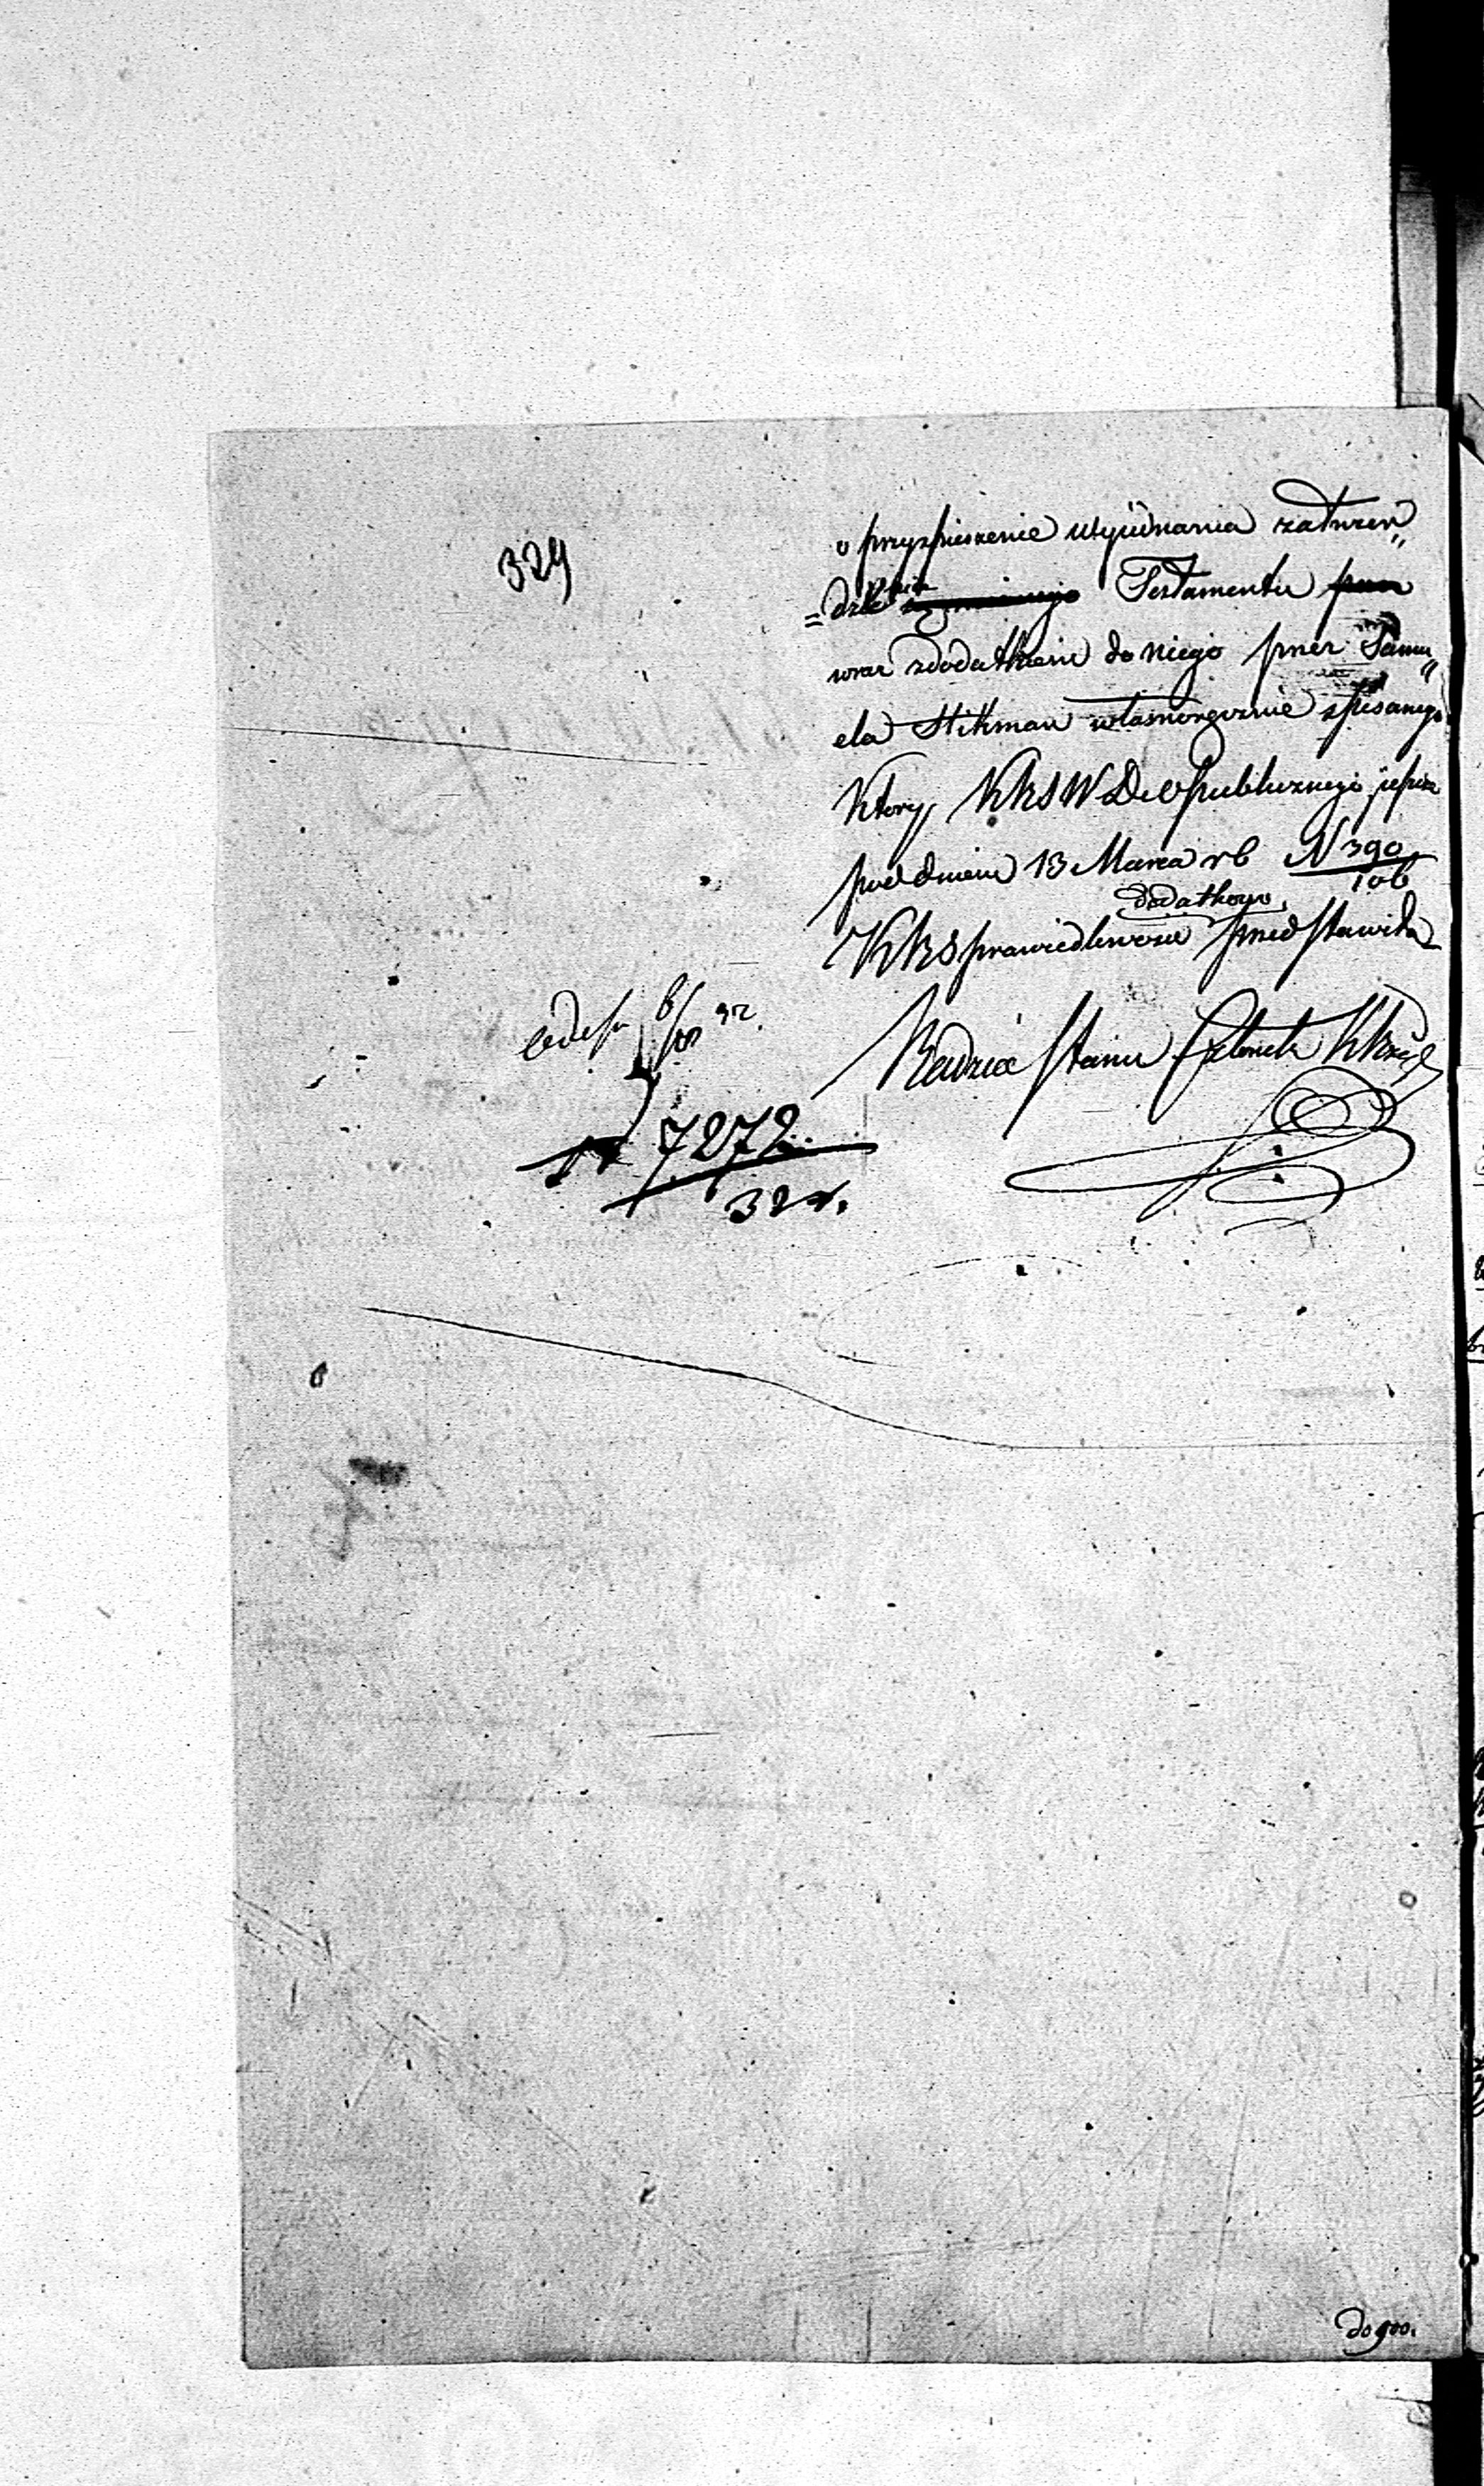 329
o przyspieszenie wyjednania zatwier„
=dzenia Testamentu
wraz zdodatkiem do niego przez Samu„
ela Stikman własnoręcznie spisanego
Który KRSW D i O publicznego jeszcze
pod dniem 13 Marca rb N 390/106
dodatkowo
KRSprawiedliwości przedstawiła
Radzca Stanu Członek KRząd
7272
324.
do 900.